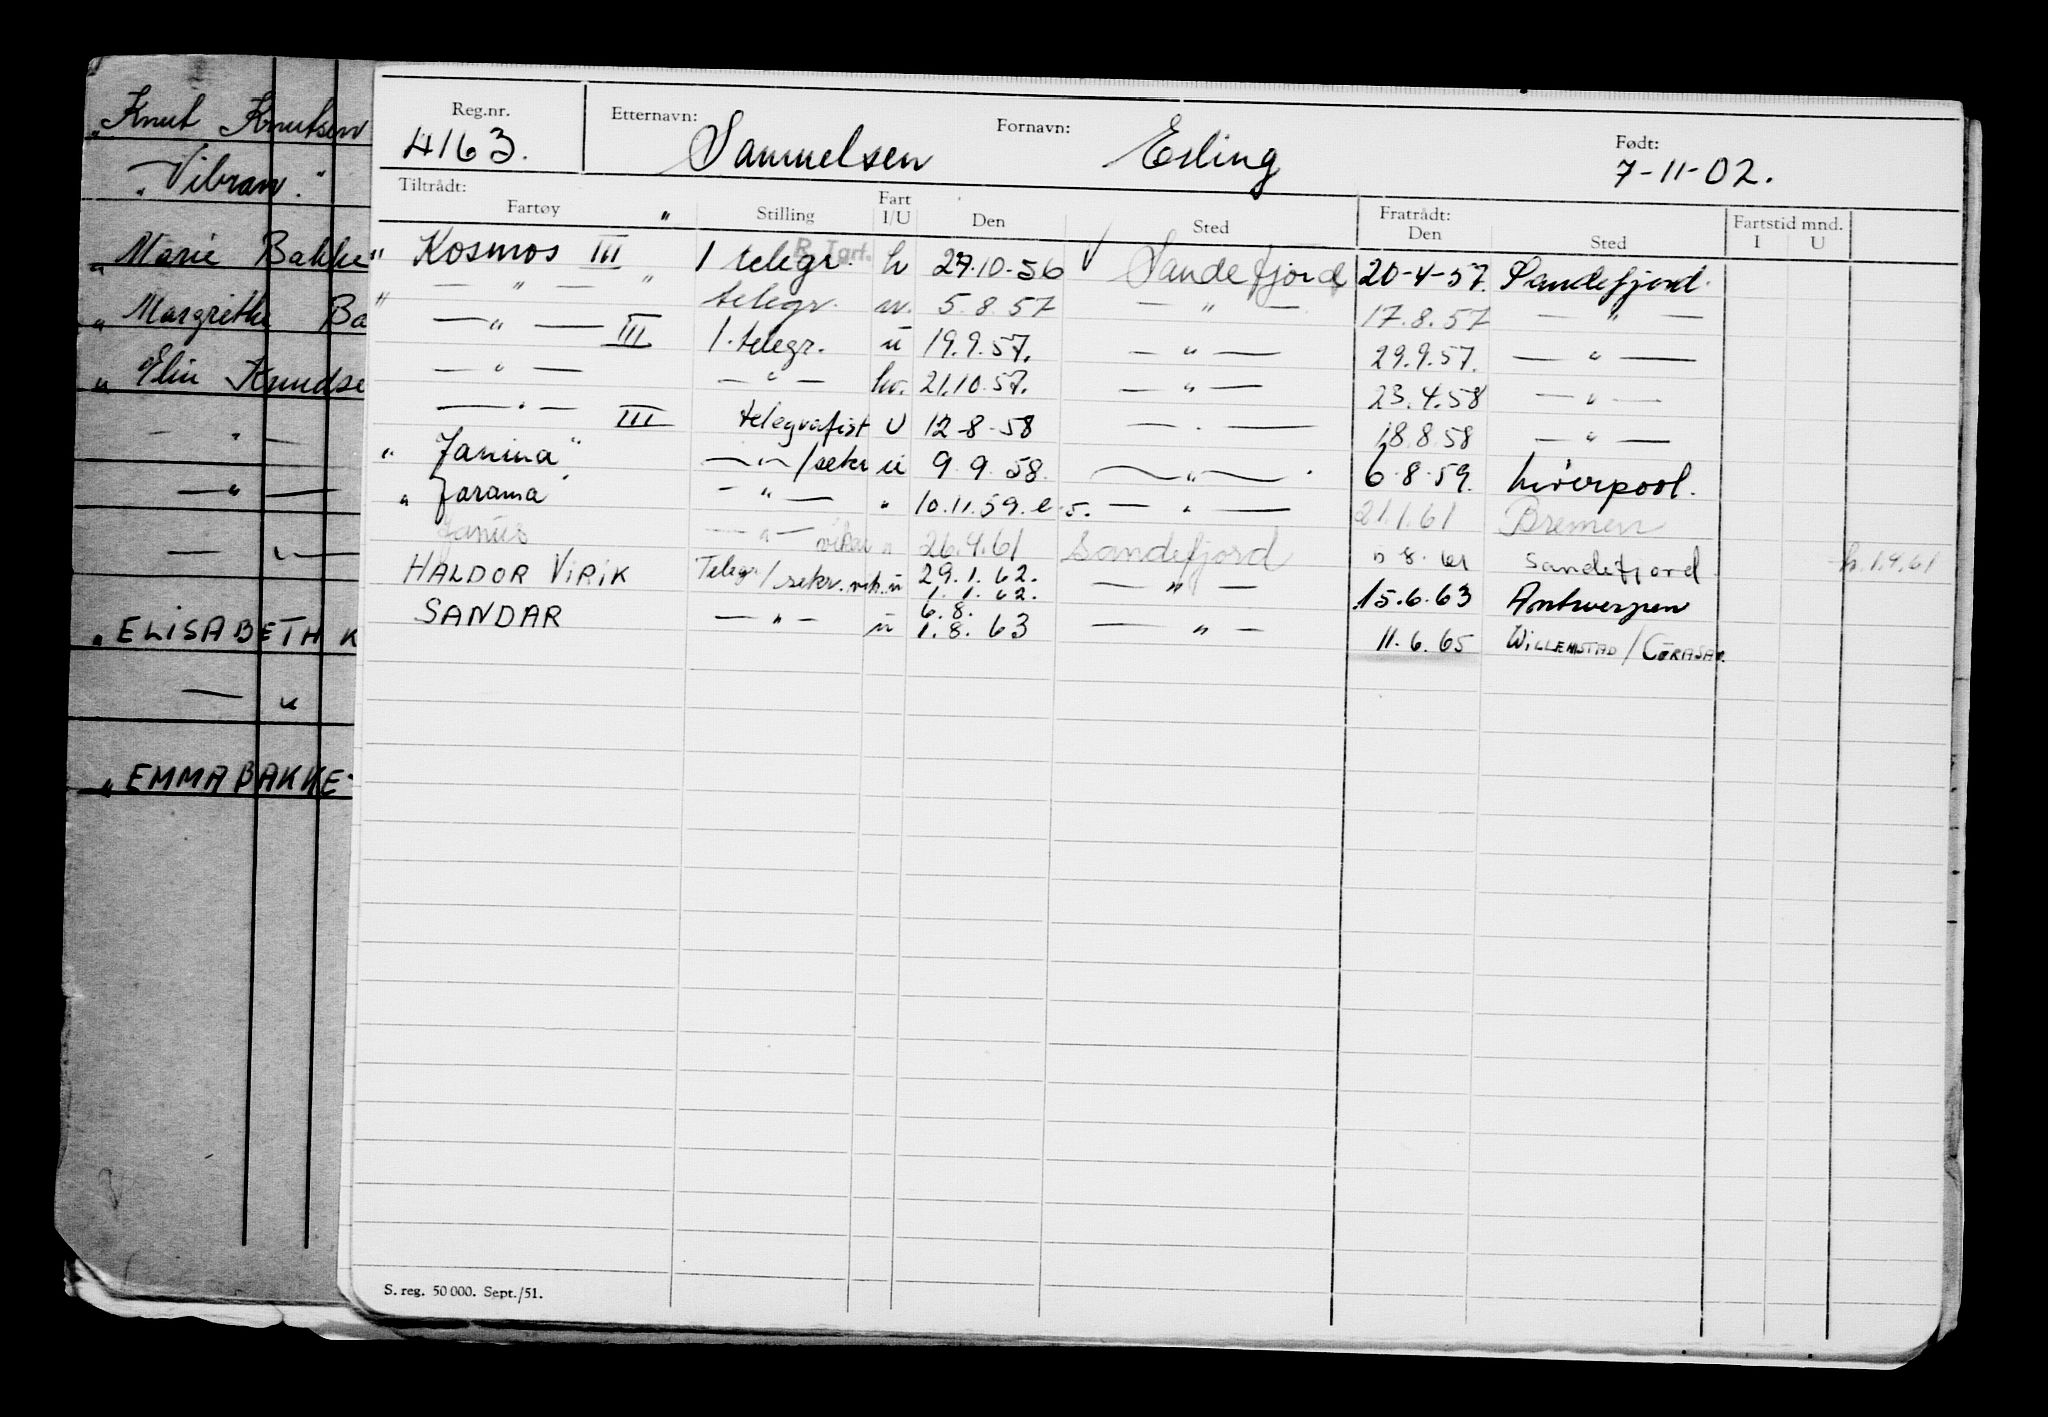 " Knut Knutsen
" Vibran "
" Marie Bakke "
" Margrethe Ba
" Elin Knudse
— " —
— " —
— " —
" ELISABETH K
— " —
" EMMA BAKKE "
Reg.nr. Etternavn: Fornavn: Født:
4163. Samuelsen Erling 7-11-02.
Tiltrådt: Fratrådt: Fartstid mnd.
Fartøy Stilling Fart I/U Den Sted Den Sted I U
Kosmos III " 1 telegr. R.Tgrf. h 27.10-56 Sandefjord 20-4-57. Sandefjord.
" — " — " telegr. 5.8.57 — " — 17.8.57 — " —
— " — III 1. telegr. u 19.9.57. — " — 29.9.57. — " —
— " — — " — hv. 21.10.57. — " — 23.4.58 — " —
— " — III telegrafist U 12-8-58 — " — 18.8.58 — " —
" Janina " — " — /sekr u 9.9.58. — " — 6-8-59. Liverpool.
" Jarama " — " — " 10.11.59. — " — 21.1.61 Bremen
Janus — " — vikar " 26.4.61 Sandefjord 8.61 Sandefjord h.1.9.61
HALDOR VIRIK Telegr/sekr. u 29.1.62. 1.1.62. — " — 15.6.63 Antwerpen
SANDAR — " — u 6.8. 1.8.63 — " — 11.6.65 WILLEMSTAD/CURASAO.
S. reg. 50 000. Sept./51.